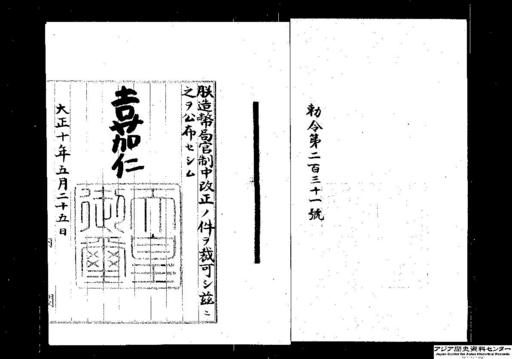 勅令第二百三十一號
朕造幣局官制中改正ノ件ヲ裁可シ茲ニ
之ヲ公布セシム
嘉仁
天皇御璽
大正十年五月二十五日
アジア歴史資料センター
Japan Center for Asian Historical Records